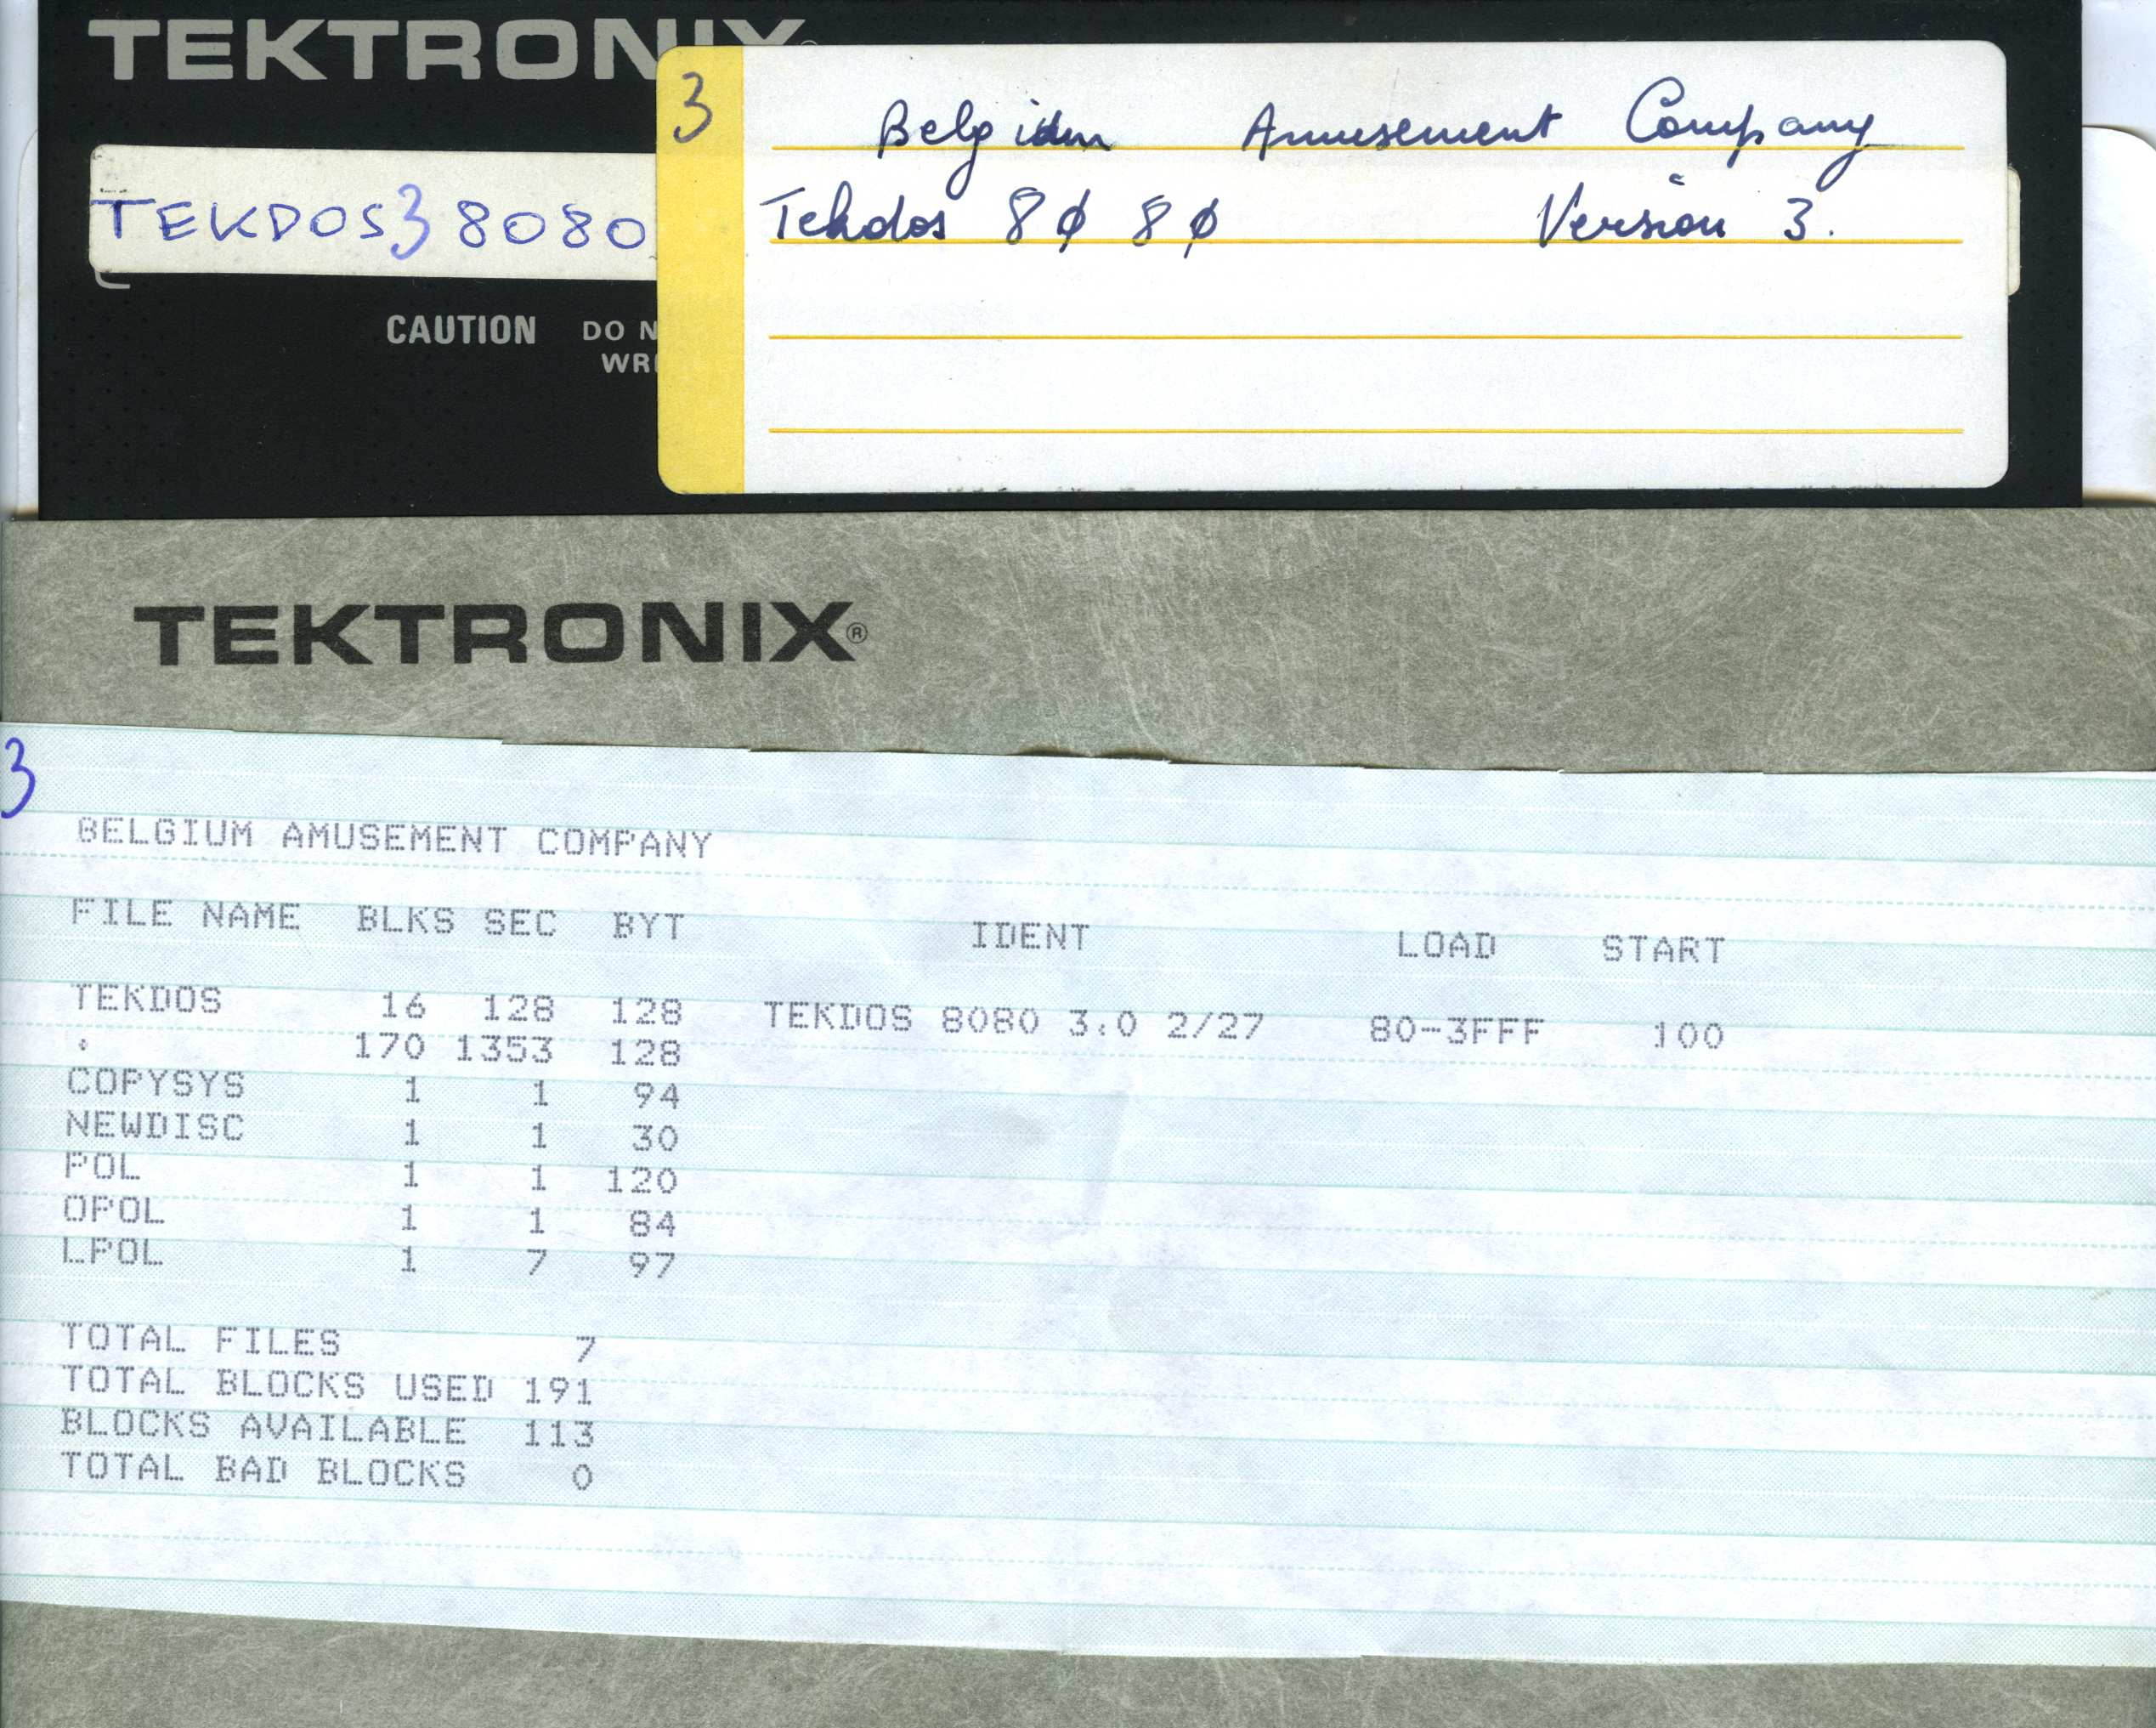 TEKTRONIX
3
Belgium Amusement Company
TEKDOS3 8080
Tekdos 8φ 8φ Version 3.
CAUTION DO N
WRI
TEKTRONIX®
3
BELGIUM AMUSEMENT COMPANY
FILE NAME BLKS SEC BYT IDENT LOAD START
TEKDOS 16 128 128 TEKDOS 8080 3.0 2/27 80-3FFF 100
. 170 1353 128
COPYSYS 1 1 94
NEWDISC 1 1 30
POL 1 1 120
OPOL 1 1 84
LPOL 1 7 97
TOTAL FILES 7
TOTAL BLOCKS USED 191
BLOCKS AVAILABLE 113
TOTAL BAD BLOCKS 0